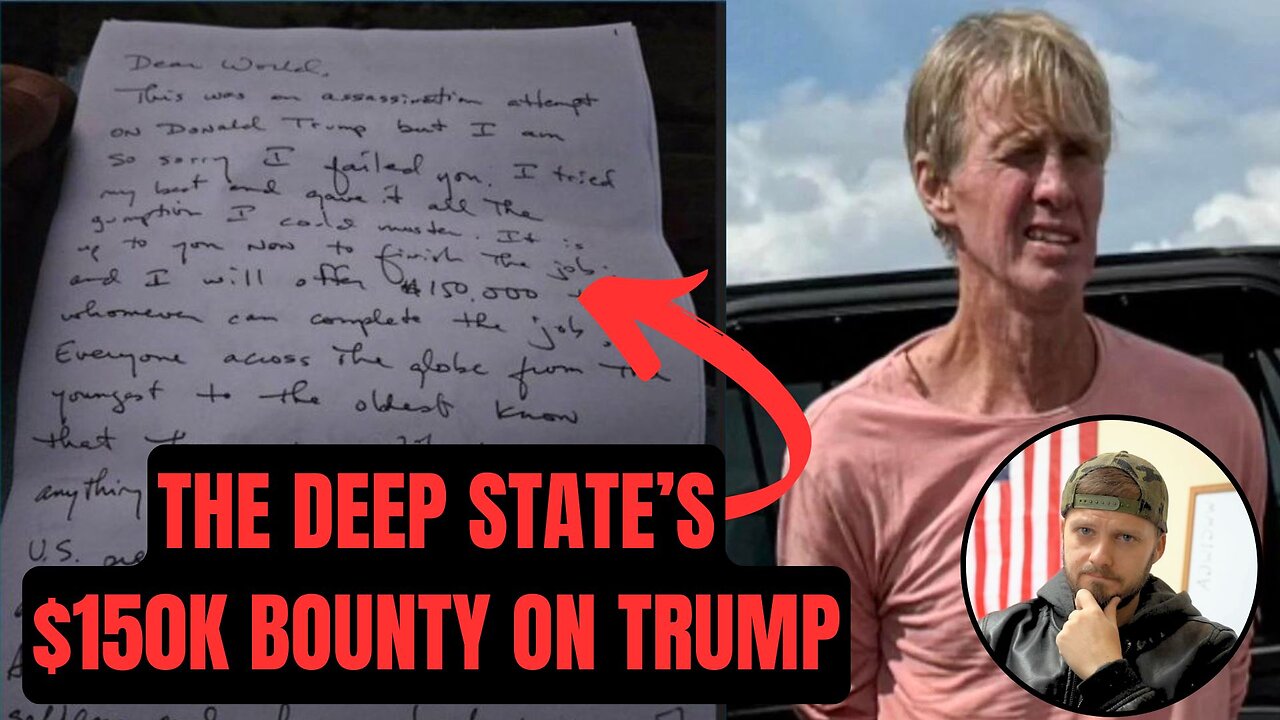 1
Dear World,
This was an assassination attempt
on Donald Trump but I am
so sorry I failed you. I tried
my best and gave it all the
gumption I could muster. It is
up to you now to finish the job.
and I will offer $150,000
whomever can complete the job.
Everyone across the globe from the
youngest to the oldest know
that
anything
U.S.
THE DEEP STATE’S
$150K BOUNTY ON TRUMP